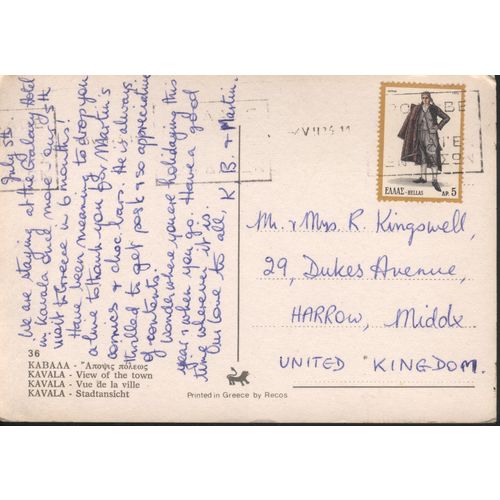 July 5th.
We are staying at the Galaxy Hotel
in Kavala until move - our 5th
visit to Greece in 6 months!
Have been meaning to drop you
a line to thank you for Martin's
comics & choc bars. He is always
thrilled to get post & so appreciative
of contents.
Wonder where you're holidaying this
year & when you go. Have a good
time wherever it is.
Our love to all,
K B. & Martin.
ΕΛΛΑΣ-HELLAS ΔΡ. 5
Mr. & Mrs R. Kingswell,
29, Dukes Avenue,
HARROW, Middx
UNITED KINGDOM.
36
ΚΑΒΑΛΑ - Ἄποψις πόλεως
KAVALA - View of the town
KAVALA - Vue de la ville
KAVALA - Stadtansicht
Printed in Greece by Recos